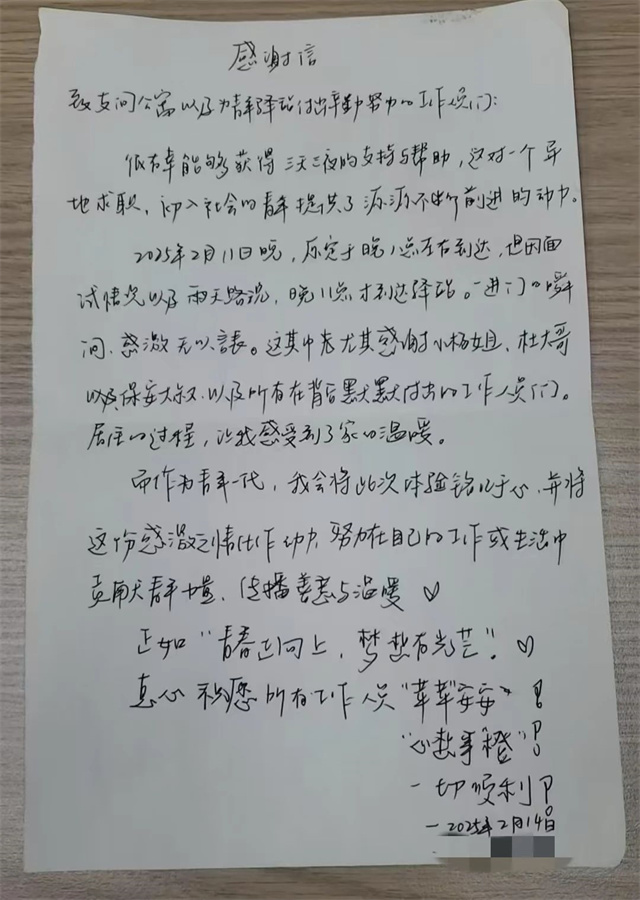 感谢信
致支间公寓以及为青年驿站付出辛勤努力的工作人员们：
很有幸能够获得三天三夜的支持与帮助，这对一个异
地求职、初入社会的青年提供了源源不断前进的动力。
2025年2月11日晚，原定于晚八点左右到达，但因面
试情况以及雨天路况，晚11点才到达驿站。一进门的瞬
间，感激无以言表。这其中尤其感谢小杨姐、杜大哥
以及保安大叔，以及所有在背后默默付出的工作人员们。
居住的过程，让我感受到了家的温暖。
而作为青年一代，我会将此次体验铭记于心，并将
这份感激之情化作动力，努力在自己的工作或生活中
贡献青年力量、传播善意与温暖♡
正如“青春正向上，梦想有光芒”。♡
真心祝愿所有工作人员“苹苹”安安！
“心想事橙”！
一切顺利！
—2025年2月14日